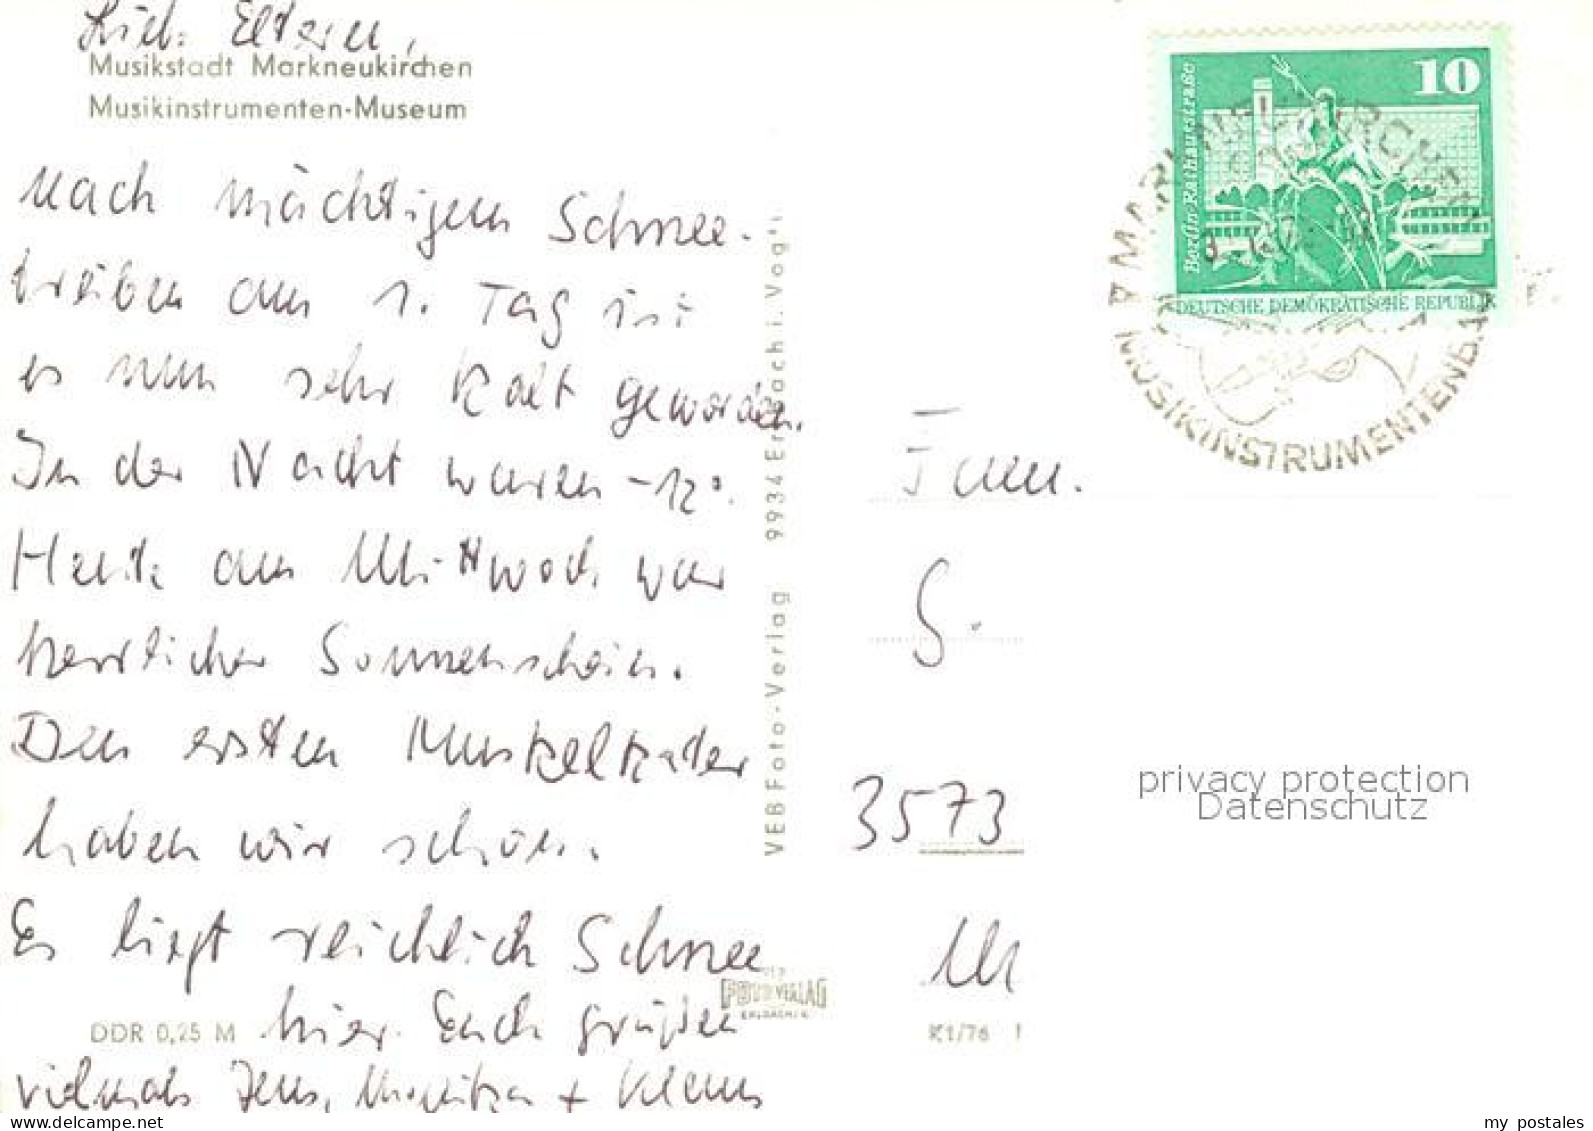 Liebe Eltern,
Musikstadt Markneukirchen
Musikinstrumenten-Museum
nach mächtigem Schnee-
treiben am 1. Tag ist
es nun sehr kalt geworden.
In der Nacht waren -12°.
Heute am Mittwoch war
herrlicher Sonnenschein.
Den ersten Muskelkater
haben wir schon.
Es liegt reichlich Schnee
hier. Euch grüßen
vielmals Jens, + Klaus
DDR 0,25 M
VEB Foto-Verlag 9934 Erlbach i. Vogtl.
FOTO-VERLAG
ERLBACH
K1/76
10
Berlin-Rathausstraße
DEUTSCHE DEMOKRATISCHE REPUBLIK
MARKNEUKIRCHEN
MUSIKINSTRUMENTENBAU
Fam.
G.
3573
privacy protection
Datenschutz
delcampe.net
my_postales